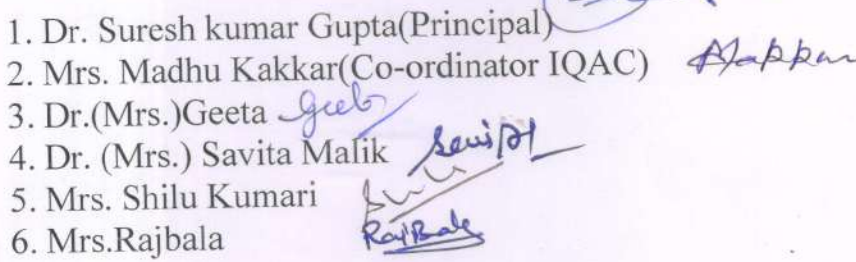 1. Dr. Suresh kumar Gupta(Principal)
2. Mrs. Madhu Kakkar(Co-ordinator IQAC)
3. Dr.(Mrs.)Geeta
4. Dr. (Mrs.) Savita Malik
5. Mrs. Shilu Kumari
6. Mrs.Rajbala RajBala